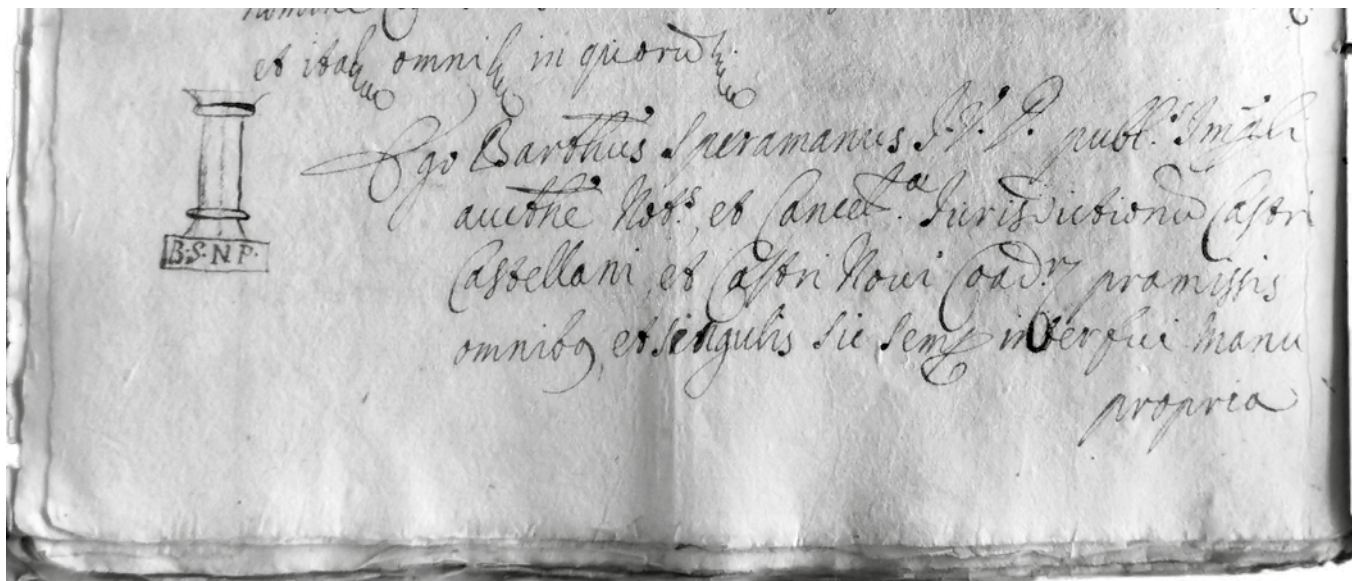 et ita omni in quorū
Ego Barthūs Speramanus J. V. D. publ.s Impli
aucthē Not.s, et Cancel.a Jurisdictionū Castri
Castellani, et Castri Noui Coad.r pramissis
omnibq et singulis sic semp interfui manu
propria
B. S. N. P.